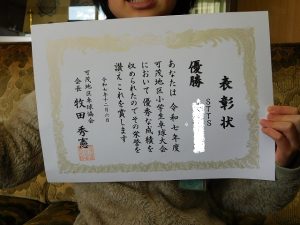 表彰状
SFTS
優勝
あなたは令和七年度
可茂地区小学生卓球大会
において優秀な成績を
収められたのでその栄誉を
讃えこれを賞します
令和七年十二月六日
可茂地区卓球協会
会長 牧田秀憲